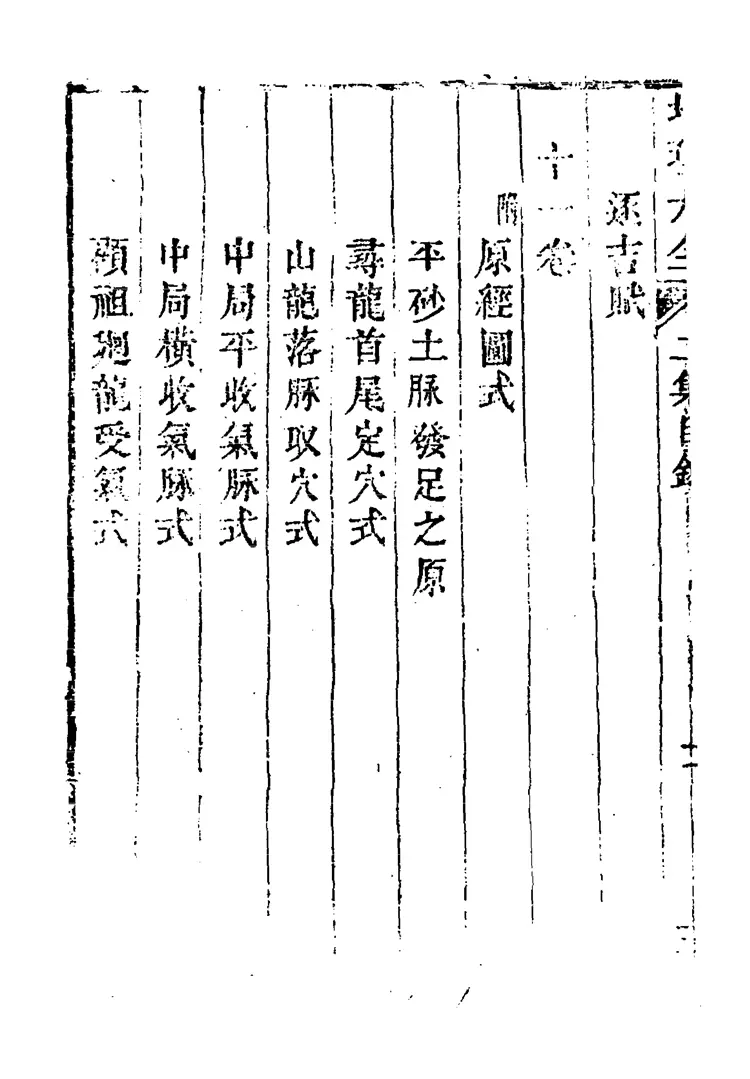 地理大全二集目錄 十一
逐吉賦
十一卷
附原經圖式
平砂土脉發足之原
尋龍首尾定穴式
山龍落脉取穴式
中局平收氣脉式
中局橫收氣脉式
顧祖廻龍受氣式